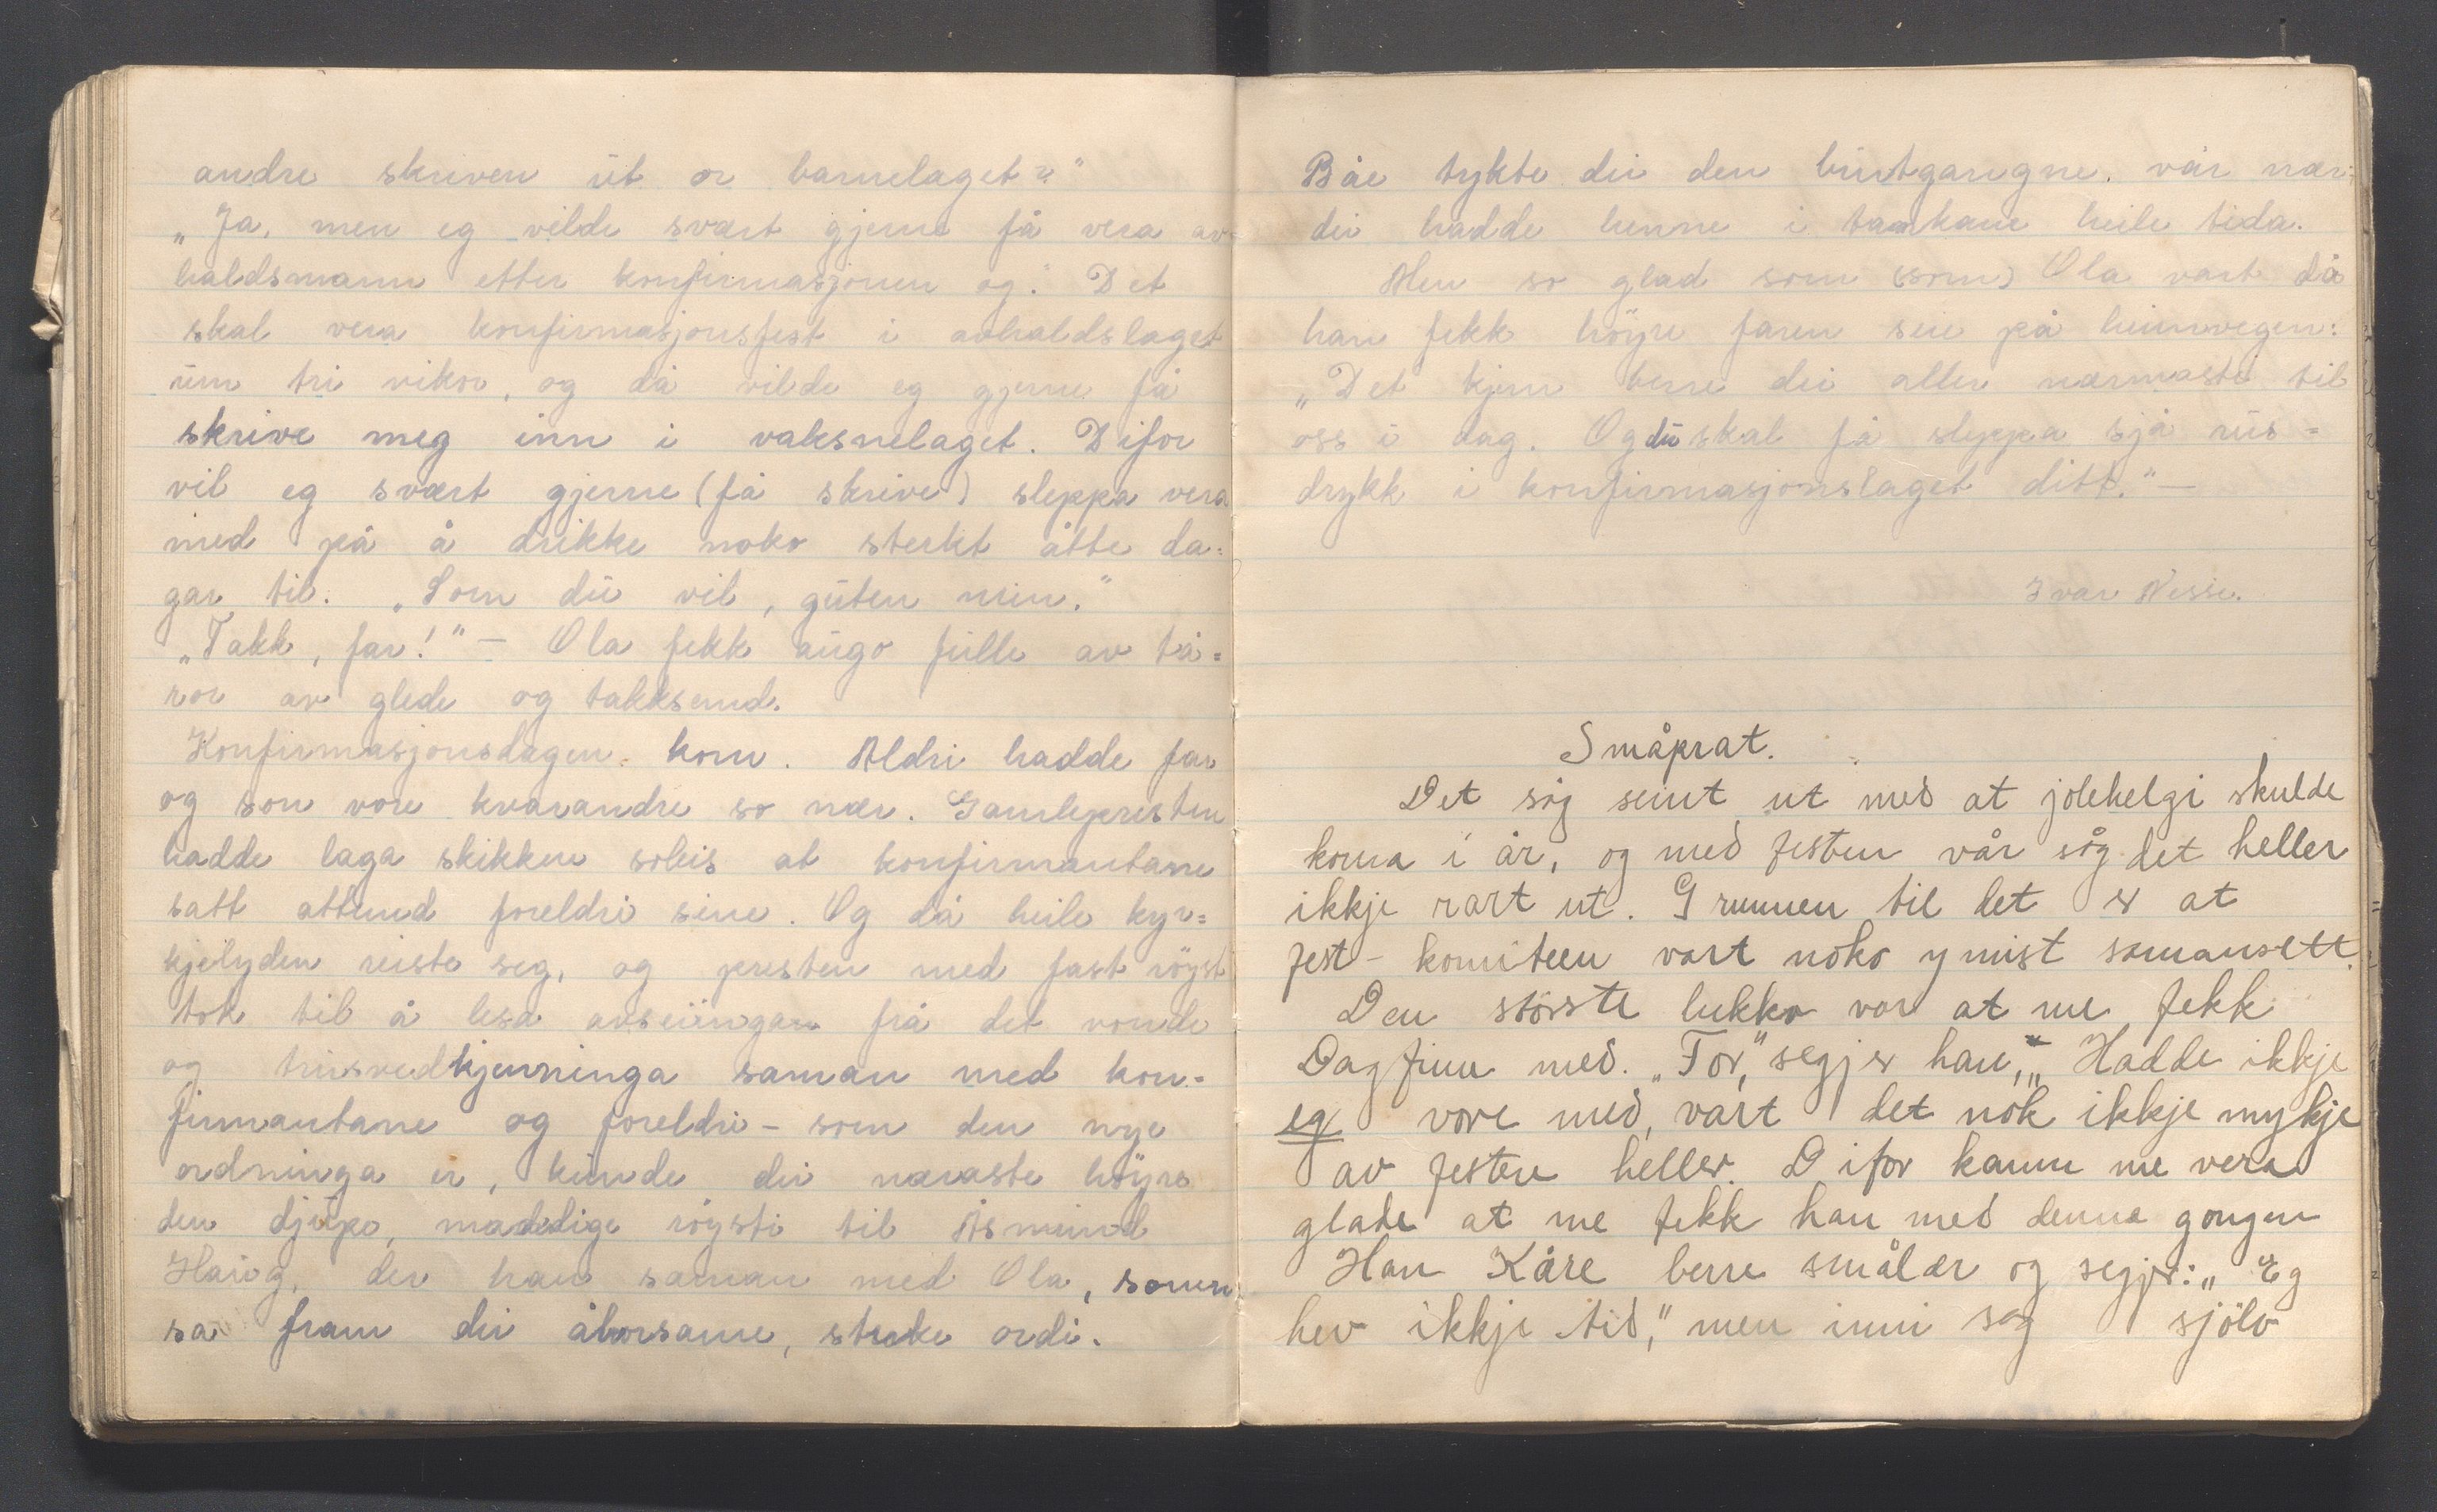 andre skriven ut or barnelaget?"
„Ja, men eg vilde svært gjerne få vera av-
haldsmann etter konfirmasjonen og." Det
skal vera konfirmasjonsfest i avhaldslaget
um tri vikor, og då vilde eg gjerne få
skrive meg inn i vaksnelaget. Difor
vil eg svært gjerne (få skrive) sleppa vera
med på å drikke noko sterkt åtte da=
gar til. „Som du vil, guten min."
„Takk, far!" — Ola fekk augo fulle av tå=
ror av glede og takksemd.
Konfirmasjonsdagen. kom. Aldri hadde far
og son vore kvarandre so nær. Gamlepresten
hadde laga skikken soleis at konfirmantane
satt attmed foreldri sine. Og då heile kyr=
kjelyden reiste seg, og presten med fast röyst
tok til å lesa avseiingar frå det vonde
og truvedkjenninga saman med kon=
firmantane og foreldri - som den nye
ordninga er, kunde dei næraste höyre
den djupe, mandige röysti til Åsmund
Haug, der han saman med Ola, sonen
sa fram dei ålvorsame, sterke ordi.
Båe tykte dei den burtgangne. var nær=
dei hadde henne i tankane heile tida.
Men so glad som (som) Ola vart då
han fekk höyre faren seie på heimvegen:
„Det kjem berre dei aller nærmaste til
oss i dag. Og du skal få sleppa sjå rus=
drykk i konfirmasjonslaget ditt." —
Ivar Nesse.
Småprat.
Det såg seint ut med at jolehelgi skulde
koma i år, og med festen vår såg det heller
ikkje rart ut. Grunnen til det er at
fest- komiteen vart noko ymist samansett.
Den störste lukko var at me fekk
Dagfinn med. „For," segjer han, „Hadde ikkje
eg vore med, vart det nok ikkje mykje
av festen heller. Difor kann me vera
glade at me fekk han med denne gongen
Han Kåre berre smålær og segjer: „Eg
hev ikkje tid," men inni seg sjölv